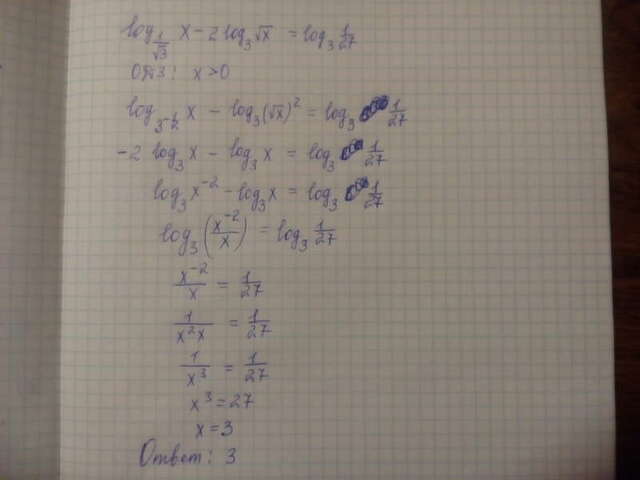 log_{1/√3} x - 2 log_3 √x = log_3 1/27
ОДЗ: x > 0
log_{3^{-1/2}} x - log_3 (√x)^2 = log_3 1/27
-2 log_3 x - log_3 x = log_3 1/27
log_3 x^{-2} - log_3 x = log_3 1/27
log_3 (x^{-2}/x) = log_3 1/27
x^{-2}/x = 1/27
1/(x^2 x) = 1/27
1/x^3 = 1/27
x^3 = 27
x = 3
Ответ: 3